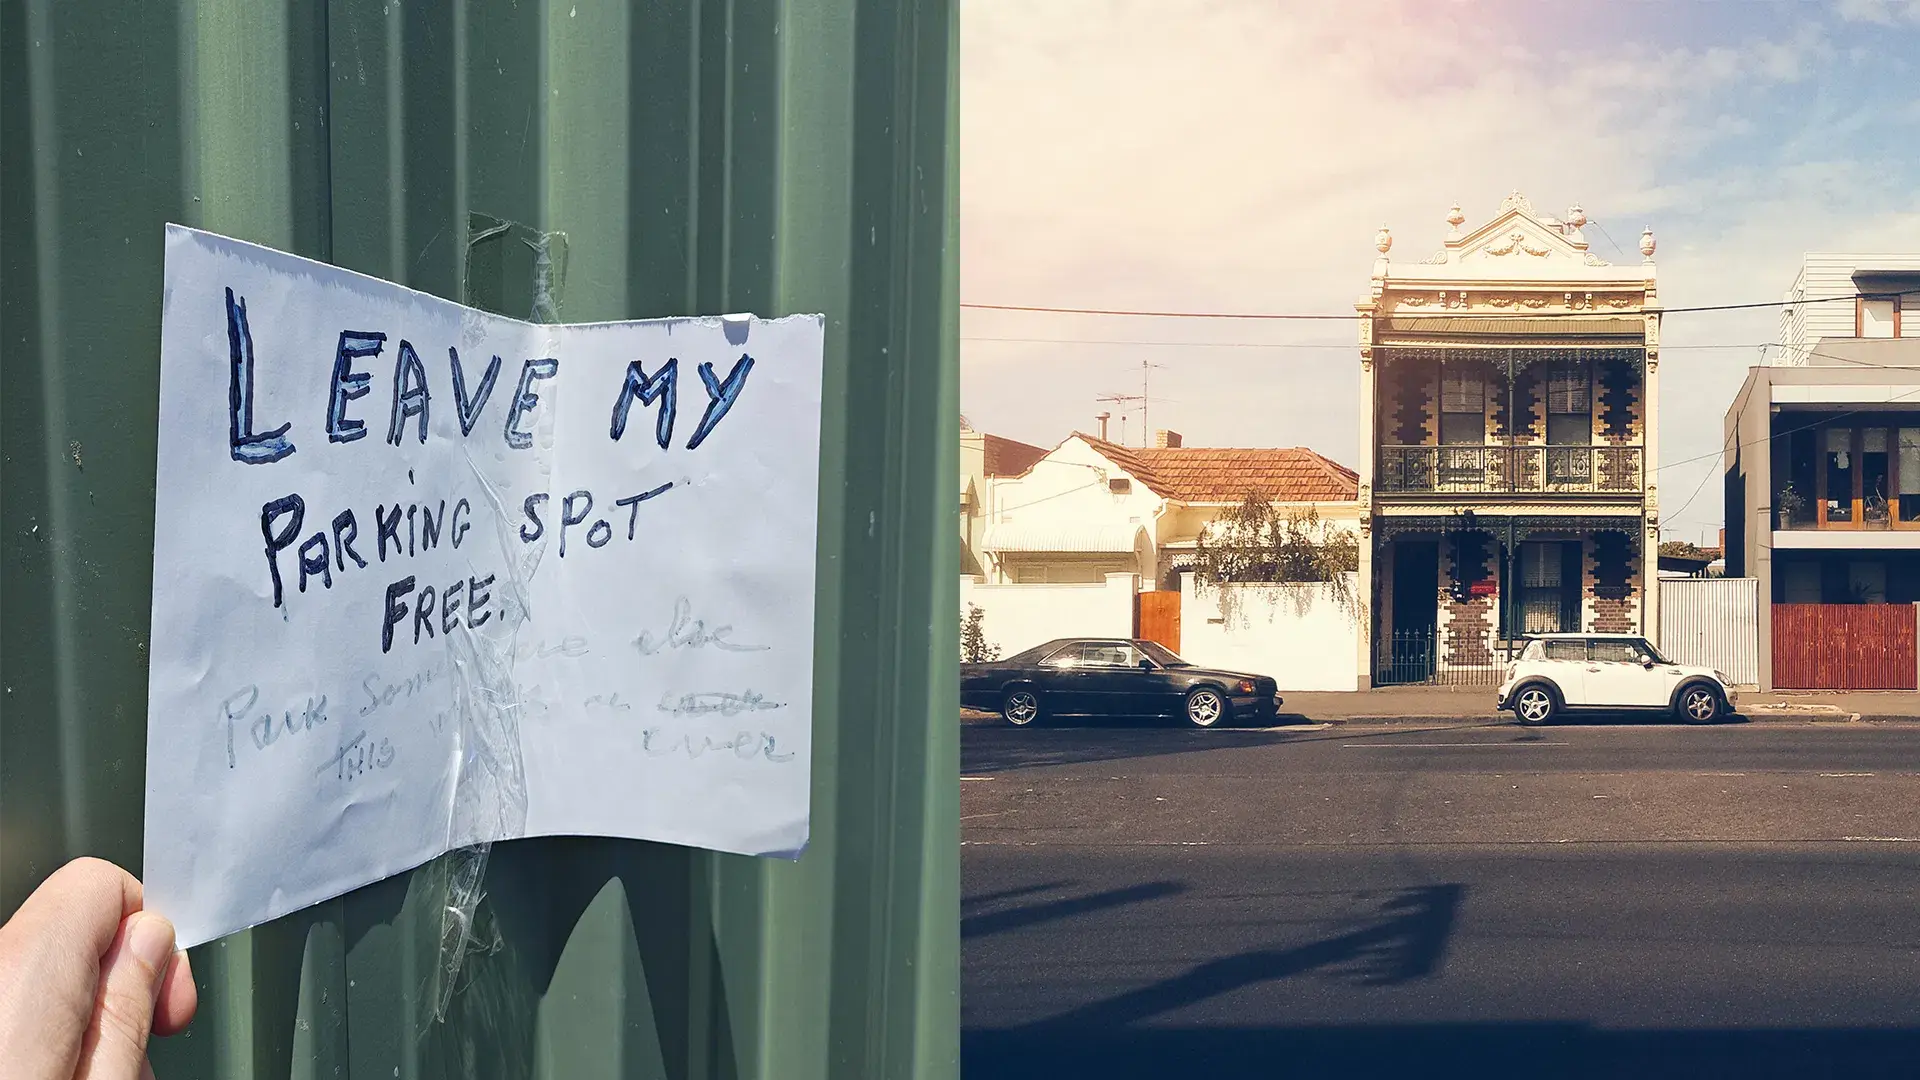 LEAVE MY
PARKING SPOT
FREE.
Park Some else
THIS